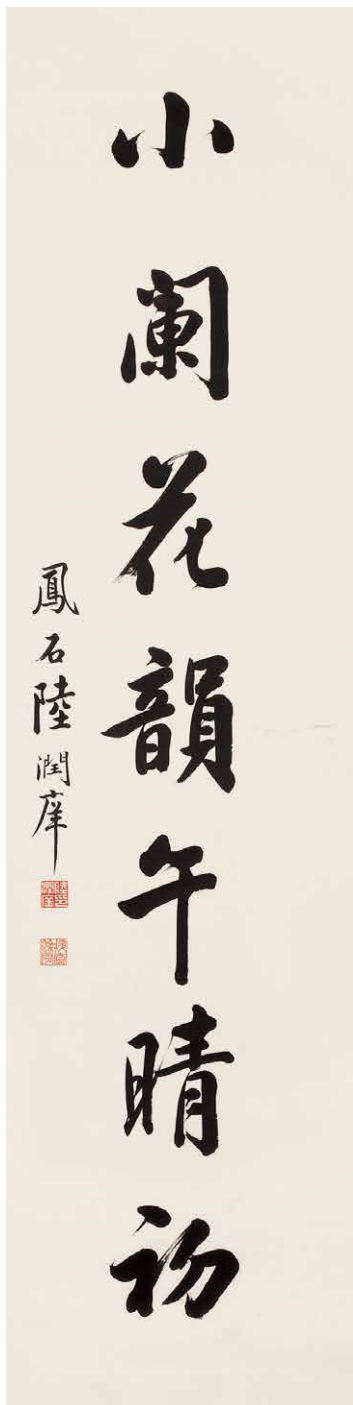 小闌花韻午晴初
鳳石陸潤庠